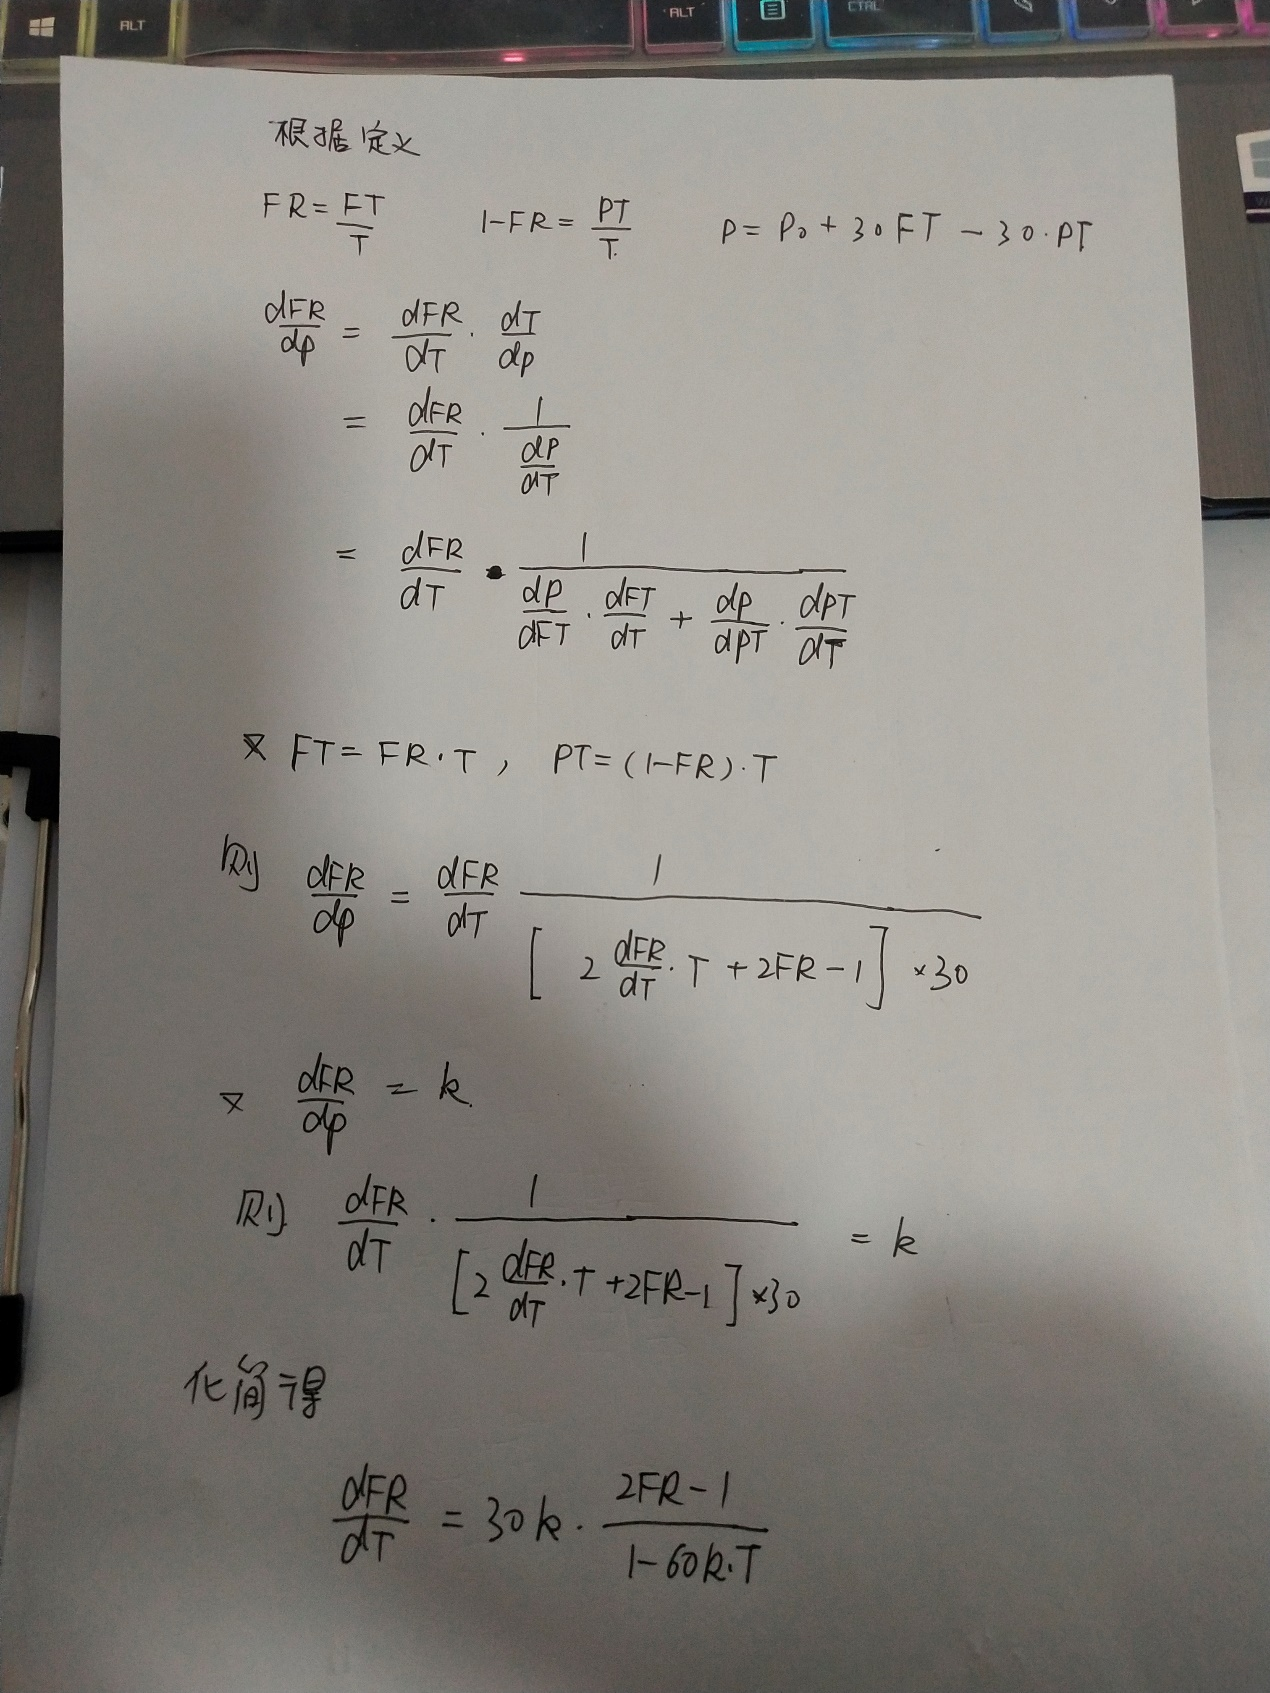 ALT
ALT
CTRL
根据定义
FR=FT/T 1-FR=PT/T P=P₀+30FT-30·PT
dFR/dP = dFR/dT · dT/dP
= dFR/dT · 1/(dP/dT)
= dFR/dT · 1/(dP/dFT · dFT/dT + dP/dPT · dPT/dT)
又 FT=FR·T, PT=(1-FR)·T
则 dFR/dP = dFR/dT 1/([2 dFR/dT·T+2FR-1]×30)
又 dFR/dP = k.
则 dFR/dT · 1/([2 dFR/dT·T+2FR-1]×30) = k
化简得
dFR/dT = 30k · (2FR-1)/(1-60k·T)